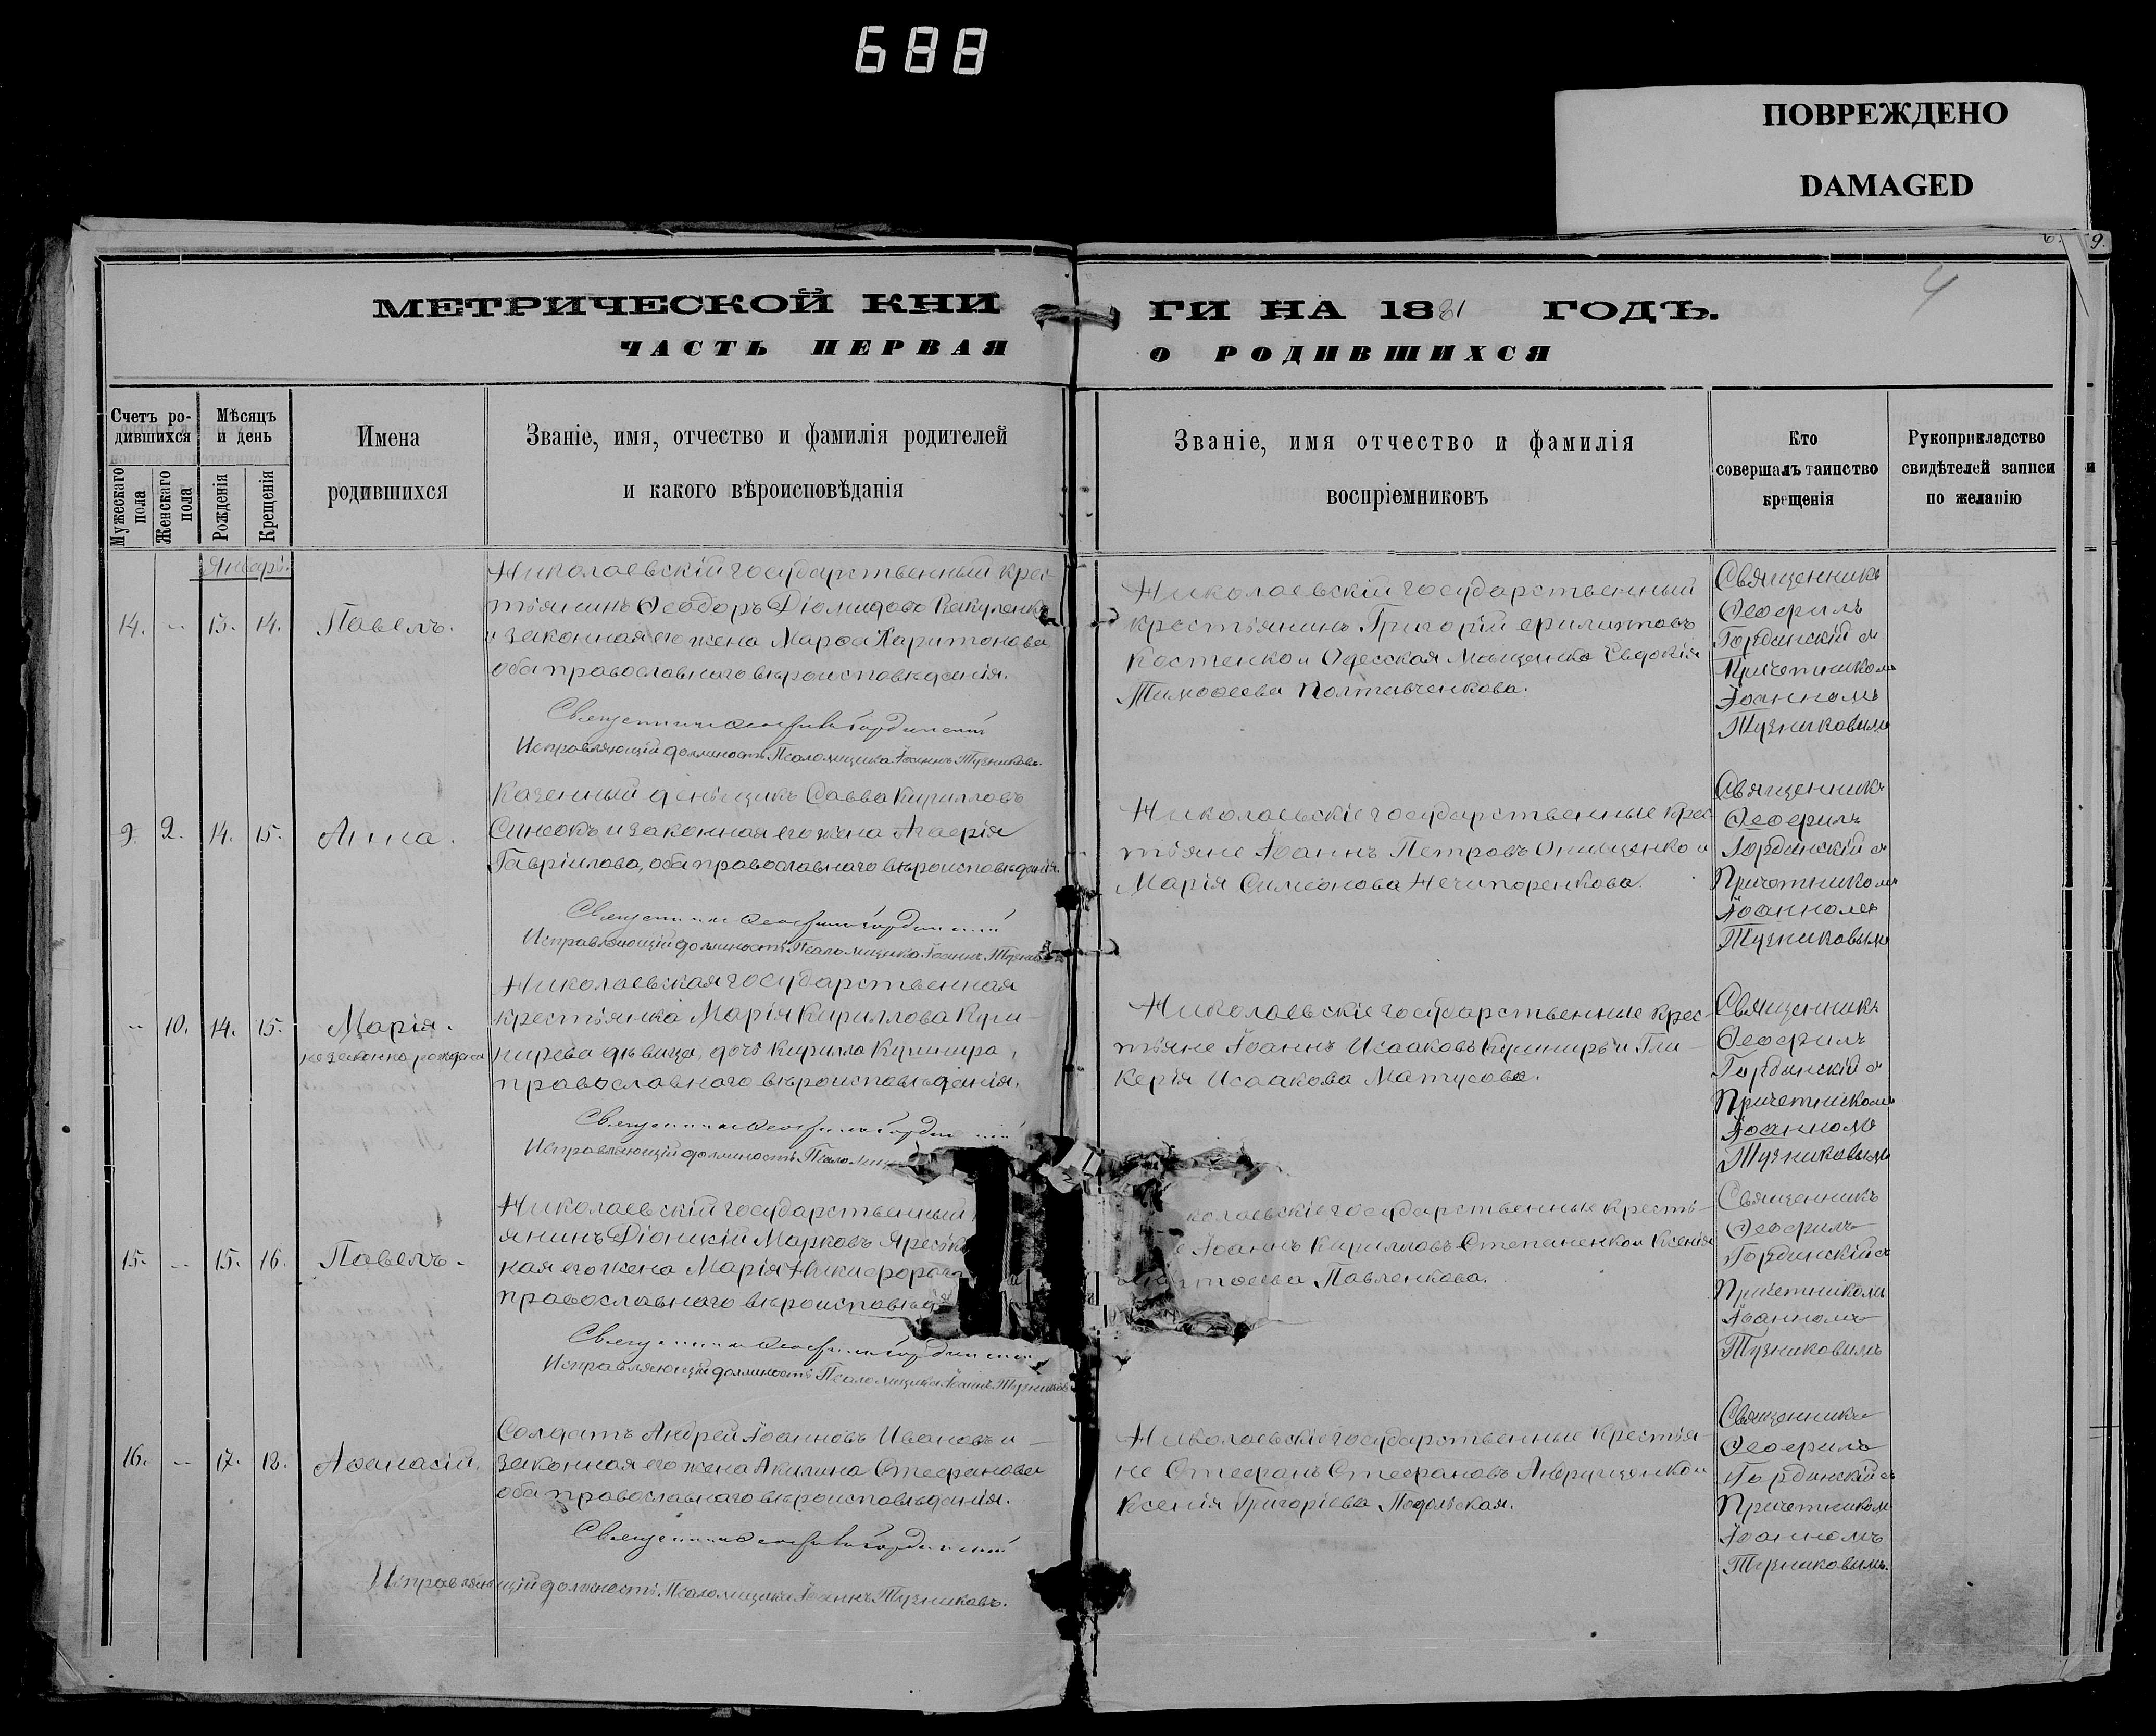 688
ПОВРЕЖДЕНО
DAMAGED
6. 9.
4
МЕТРИЧЕСКОЙ КНИ ГИ НА 1881 ГОДЪ.
ЧАСТЬ ПЕРВАЯ О РОДИВШИХСЯ
Счетъ ро-
дившихся
Мужескаго пола
Женскаго пола
Мѣсяцъ
и день
Рожденія
Крещенія
Имена
родившихся
Званіе, имя, отчество и фамилія родителей
и какого вѣроисповѣданія
Званіе, имя отчество и фамилія
воспріемниковъ
Кто
совершалъ таинство
крещенія
Рукоприкладство
свидѣтелей записи
по желанію
Январь.
14. -- 13. 14. Павелъ.
Николаевскій государственный крес-
тьянинъ Ѳеодоръ Діомидовъ
и законная его жена Марѳа Харитонова
оба православнаго вѣроисповѣданія.
Священникъ Ѳеофилъ Гординскій
Исправляющій должность Псаломщика Іоаннъ Тузниковъ.
Николаевскій государственный
крестьянинъ Григорій Филиповъ
Костенко и Одесская Мѣщанка Евдокія
Тимоѳеева Полтавченкова.
Священникъ
Ѳеофилъ
Гординскій съ
Причетникомъ
Іоанномъ
Тузниковымъ
9. 2. 14. 15. Анна.
Казенный деньщикъ Савва Кирилловъ
Синеокъ и законная его жена Агаѳія
Гавріилова, оба православнаго вѣроисповѣданія.
Священникъ Ѳеофилъ Гординскій
Исправляющій должность Псаломщика Іоаннъ
Николаевскіе государственные крес-
тьяне Іоаннъ Петровъ Онищенко и
Марія Симеонова Нечипоренкова.
Священникъ
Ѳеофилъ
Гординскій съ
Причетникомъ
Іоанномъ
Тузниковымъ
-- 10. 14. 15. Марія.
незаконнорождена
Николаевская государственная
крестьянка Марія Кириллова Куш-
нирева дѣвица, дочь Кирилла Кушнира,
православнаго вѣроисповѣданія.
Священникъ Ѳеофилъ Гординскій
Исправляющій должность
Николаевскіе государственные крес-
тьяне Іоаннъ Исааковъ Кушниръ и Гли-
керія Исаакова Матусова.
Священникъ
Ѳеофилъ
Гординскій съ
Причетникомъ
Іоанномъ
Тузниковымъ
15. -- 15. 16. Павелъ.
Николаевскій государственный
янинъ Діонисій Марковъ
ная его жена Марія
православнаго
Священникъ Ѳеофилъ Гординскій
Исправляющій должность Псаломщика Іоаннъ Тузниковъ
колаевскіе государственные кресть-
Іоаннъ Кирилловъ Степаненко и Ксенія
Павленкова.
Священникъ
Ѳеофилъ
Гординскій съ
Причетникомъ
Іоанномъ
Тузниковымъ
16. -- 17. 18. Аѳанасій.
Солдатъ Андрей Іоанновъ Ивановъ и
законная его жена Акилина Стефанова
оба православнаго вѣроисповѣданія.
Священникъ Ѳеофилъ Гординскій
Исправляющій должность Псаломщика Іоаннъ Тузниковъ.
Николаевскіе государственные крестья-
не Стефанъ Стефановъ Андрущенко и
Ксенія Григоріева Подольская.
Священникъ
Ѳеофилъ
Гординскій съ
Причетникомъ
Іоанномъ
Тузниковымъ.